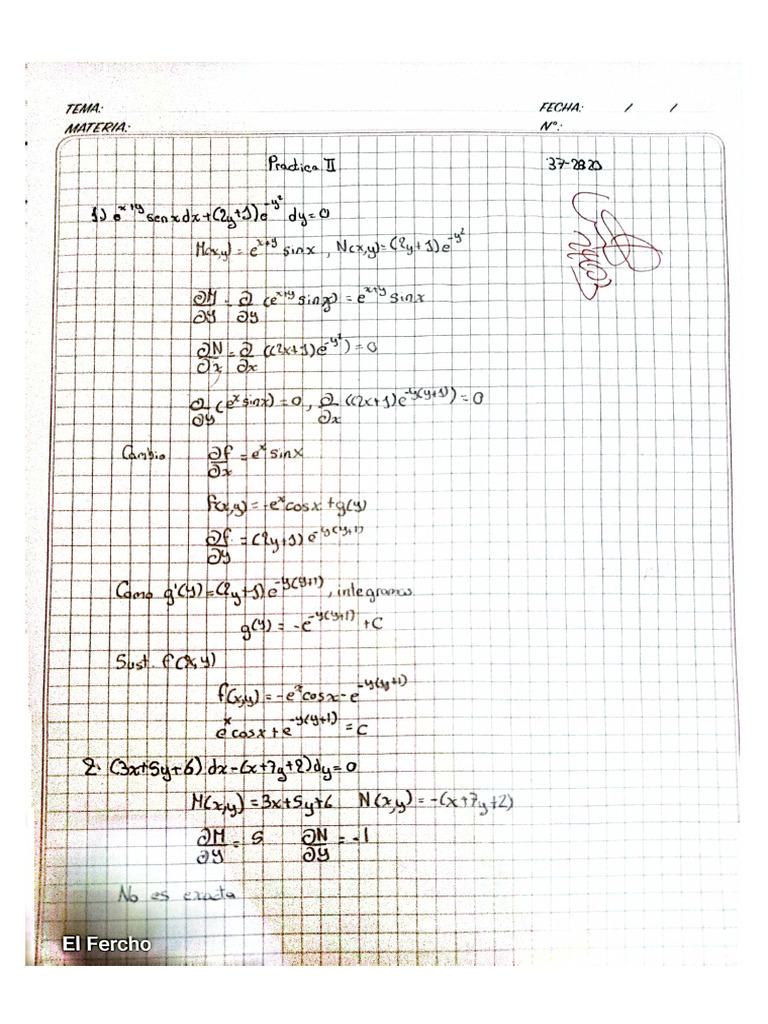 TEMA: FECHA: / /
MATERIA: N°.:
Practica II 37-2820
1) e^{x+y} senx dx+(2y+1)e^{-y^2} dy=0
M(x,y)= e^{x+y} sinx , N(x,y)=(2y+1)e^{-y^2}
∂M/∂y = ∂/∂y (e^{x+y} sinx) = e^{x+y} sinx
∂N/∂x = ∂/∂x ((2x+1)e^{-y^2})=0
∂/∂y (e^x sinx)=0 , ∂/∂x ((2x+1)e^{-y(y+1)})=0
Cambio ∂f/∂x = e^x sinx
f(x,y)=-e^x cosx+g(y)
∂f/∂y = (2y+1) e^{-y(y+1)}
Como g'(y)=(2y+1)e^{-y(y+1)}, integramos
g(y) = -e^{-y(y+1)} +C
Sust. f(x,y)
f(x,y)=-e^x cosx-e^{-y(y+1)}
e^x cosx+e^{-y(y+1)}=C
2. (3x+5y+6) dx-(x+7y+2)dy=0
M(x,y)=3x+5y+6 N(x,y)=-(x+7y+2)
∂M/∂y = 5 ∂N/∂y = -1
No es exacta
El Fercho